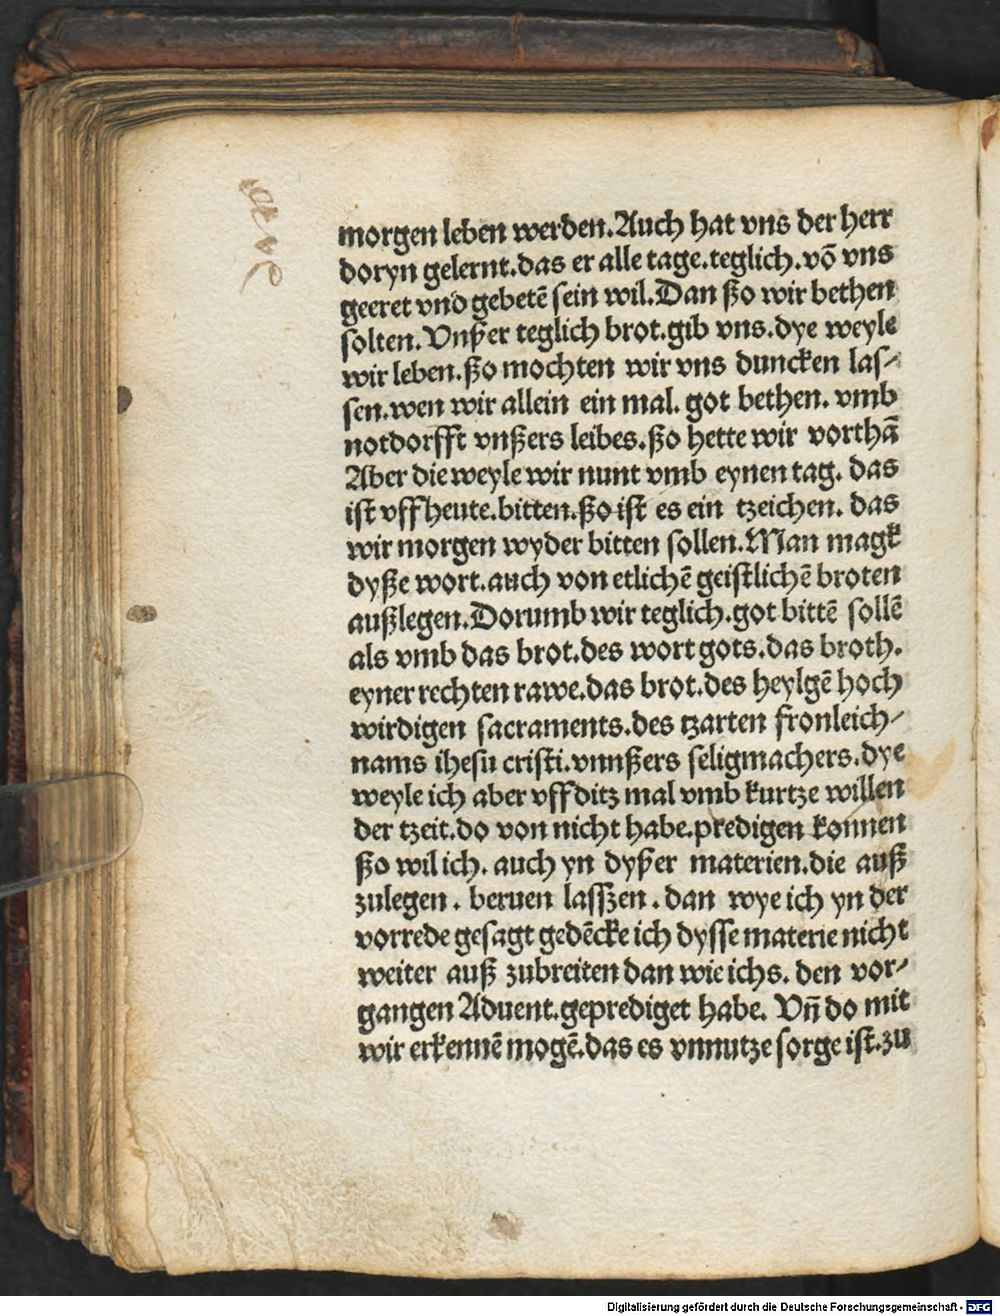 morgen leben werden. Auch hat vns der herr
doryn gelernt. das er alle tage. teglich. vō vns
geeret vnd gebetē sein wil. Dan ßo wir bethen
solten. Vnßer teglich brot. gib vns. dye weyle
wir leben. ßo mochten wir vns duncken las-
sen. wen wir allein ein mal. got bethen. vmb
notdorfft vnßers leibes. ßo hette wir vorthā
Aber die weyle wir nunt vmb eynen tag. das
ist vff heute. bitten. ßo ist es ein tzeichen. das
wir morgen wyder bitten sollen. Man magk
dyße wort. auch von etlichē geistlichē broten
außlegen. Dorumb wir teglich. got bittē sollē
als vmb das brot. des wort gots. das broth.
eyner rechten rawe. das brot. des heylgē hoch
wirdigen sacraments. des tzarten fronleich-
nams ihesu cristi. vnnßers seligmachers. dye
weyle ich aber vff ditz mal vmb kurtze willen
der tzeit. do von nicht habe. predigen konnen
ßo wil ich. auch yn dyßer materien. die auß
zulegen. beruen lasßen. dan wye ich yn der
vorrede gesagt gedēcke ich dysse materie nicht
weiter auß zubreiten dan wie ichs. den vor-
gangen Aduent. geprediget habe. Vn̄ do mit
wir erkennē mogē. das es vnnutze sorge ist. zu
Digitalisierung gefördert durch die Deutsche Forschungsgemeinschaft - DFG